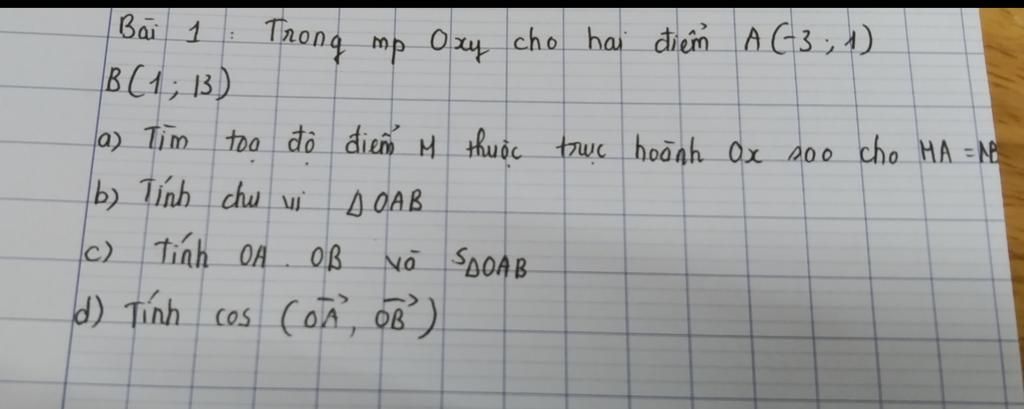 Bài 1 : Trong mp Oxy cho hai điểm A(-3 ; 1)
B(1 ; 13)
a) Tìm toạ độ điểm M thuộc trục hoành Ox sao cho MA = MB
b) Tính chu vi ΔOAB
c) Tính OA . OB và SΔOAB
d) Tính cos (OA→, OB→)